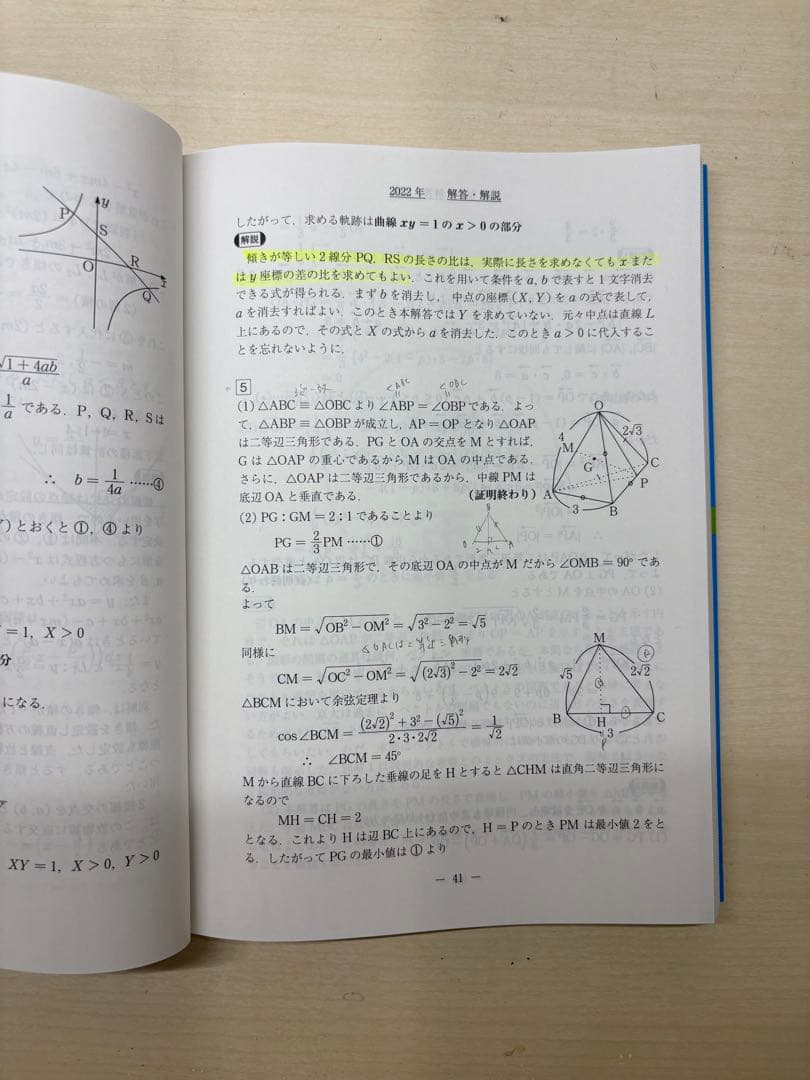 y
P
S
O
R
x
Q
√1+4ab / a
1/a である．P，Q，R，Sは
∴ b = 1/4a ……④
)とおくと①，④より
=1，X>0
分
になる．
XY=1，X>0，Y>0
2022年　解答・解説
したがって，求める軌跡は曲線 xy=1 の x>0 の部分
解説
傾きが等しい2線分PQ，RSの長さの比は，実際に長さを求めなくても x また
は y 座標の差の比を求めてもよい．これを用いて条件を a, b で表すと1文字消去
できる式が得られる．まず b を消去し，中点の座標 (X, Y) を a の式で表して，
a を消去すればよい．このとき本解答では Y を求めていない．元々中点は直線 L
上にあるので，その式と X の式から a を消去した．このとき a>0 に代入するこ
とを忘れないように．
5
∠ABC
∠OBC
(1) △ABC≡△OBC より ∠ABP=∠OBP である．よっ
て，△ABP≡△OBP が成立し，AP=OP となり △OAP
は二等辺三角形である．PG と OA の交点を M とすれば，
G は △OAP の重心であるから M は OA の中点である．
さらに，△OAP は二等辺三角形であるから，中線 PM は
底辺 OA と垂直である．　（証明終わり）
O
2√3
4
M
G
C
P
A
3
B
(2) PG：GM=2：1 であることより
PG = 2/3 PM ……①
△OAB は二等辺三角形で，その底辺 OA の中点が M だから ∠OMB=90° であ
る．
よって
BM = √OB²−OM² = √3²−2² = √5
同様に
CM = √OC²−OM² = √(2√3)²−2² = 2√2
△BCM において余弦定理より
cos∠BCM = (2√2)²+3²−(√5)² / 2・3・2√2 = 1/√2
∴ ∠BCM=45°
M
√5
2√2
B
H
C
3
P
M から直線 BC に下ろした垂線の足を H とすると △CHM は直角二等辺三角形に
なるので
MH=CH=2
となる．これより H は辺 BC 上にあるので，H=P のとき PM は最小値 2 をと
る．したがって PG の最小値は①より
— 41 —